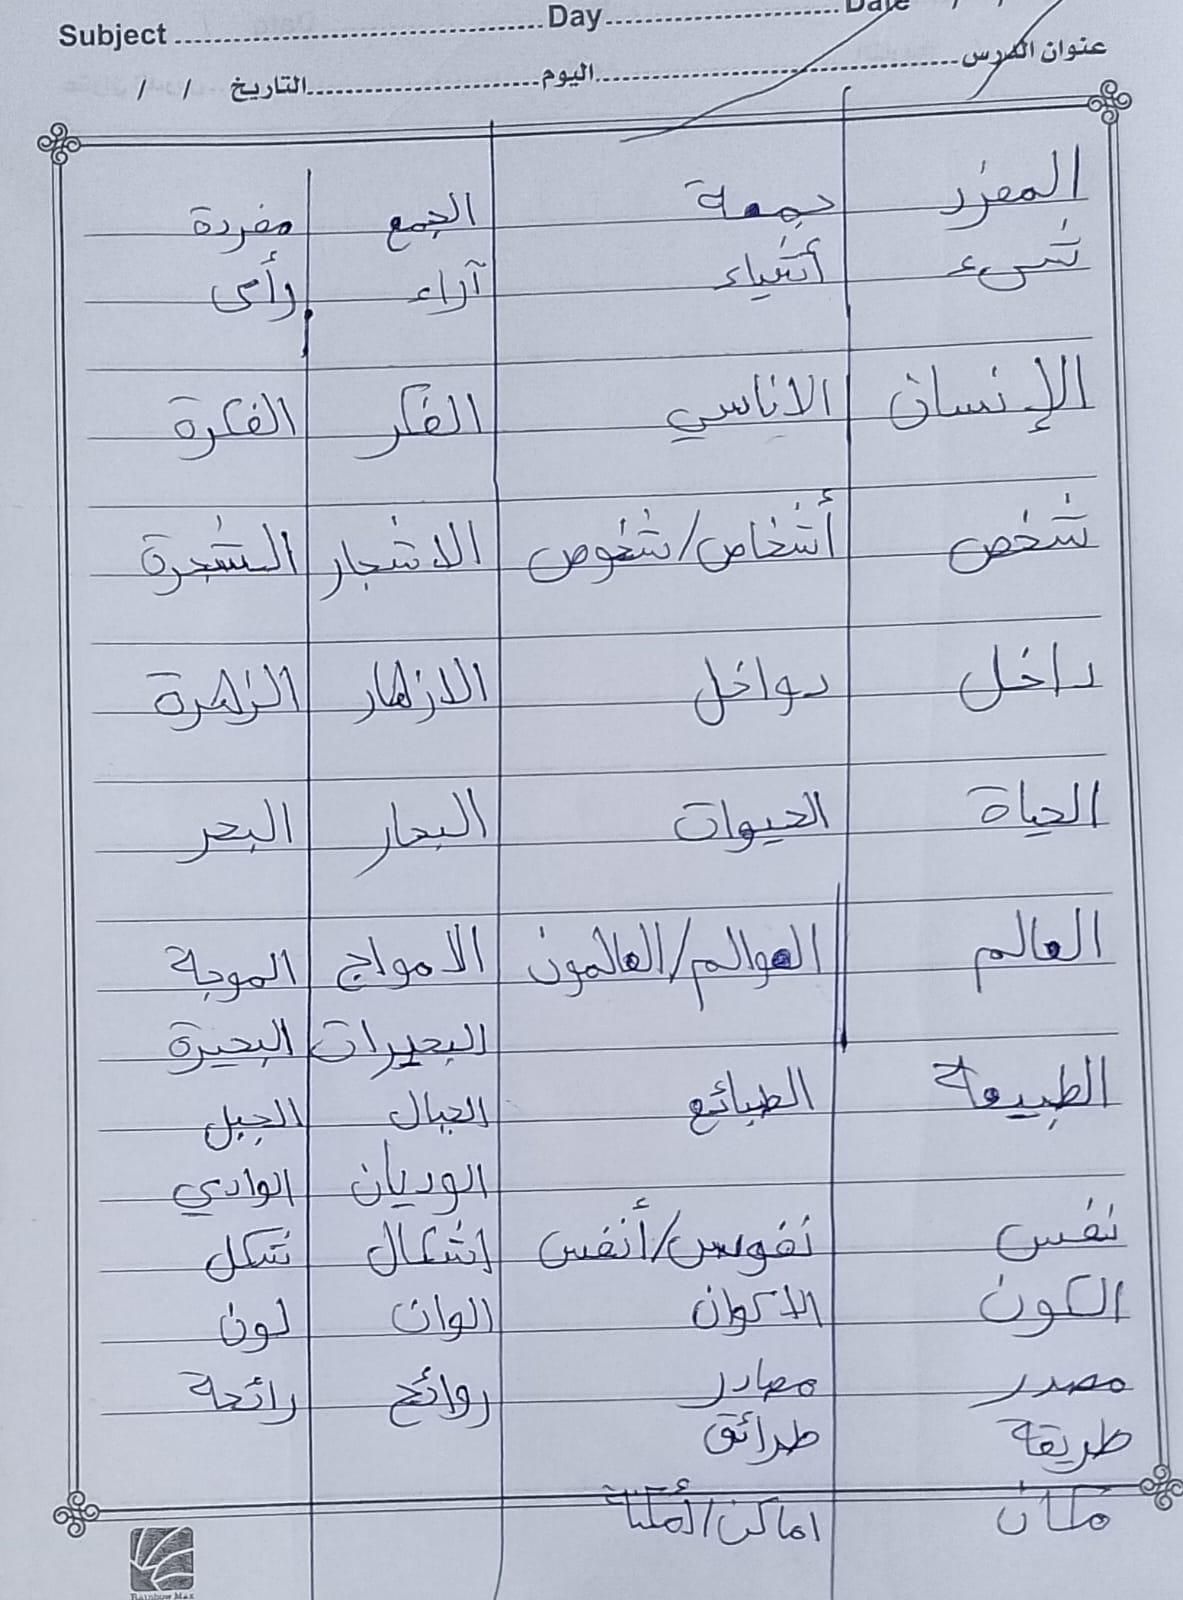 Subject Day Date / /
عنوان الدرس اليوم التاريخ / /
المفرد جمعة الجمع مفردة
شيء أشياء آراء رأى
الإنسان الاناسي الفكر الفكرة
شخص أشخاص/شخوص الاشجار الشجرة
داخل دواخل الازهار الزهرة
الحياة الحيوات البحار البحر
العالم العوالم/العالمون الامواج الموجة
البحيرات البحيرة
الطبيعة الطبائع الجبال الجبل
الوديان الوادي
نفس نفوس/أنفس اشكال شكل
الكون الاكوان الوان لون
مصدر مصادر روائح رائحة
طريقة طرائق
مكان اماكن/أمكنة
Rainbow Max